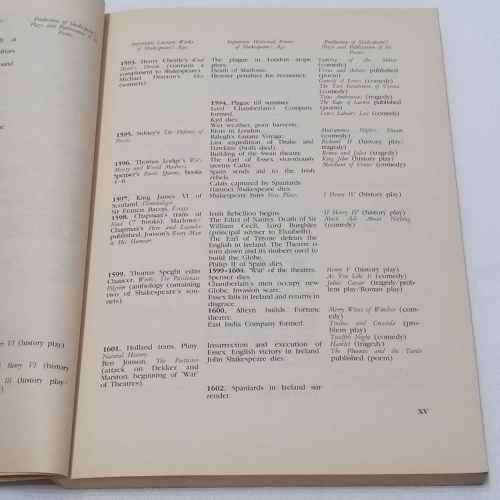 Production of Shakespeare's
Plays and Publication of his
Poems
Important Literary Works
of Shakespeare's Age
1593. Henry Chettle's Kind
Heart's Dream (contains a
compliment to Shakespeare).
Michael Drayton's Idea
(sonnets)
1595. Sidney's The Defence of
Poesie
1596. Thomas Lodge's Wits
Misery and World Madness.
Spenser's Faerie Queene, books
4–6
1597. King James VI of
Scotland, Demonology
Sir Francis Bacon, Essays
1598. Chapman's trans. of
Iliad (7 books). Marlowe-
Chapman's Hero and Leander
published. Jonson's Every Man
in His Humour
1599. Thomas Speght edits
Chaucer, Works. The Passionate
Pilgrim (anthology containing
two of Shakespeare's son-
nets)
1601. Holland trans. Pliny,
Natural History.
Ben Jonson, The Poetaster
(attack on Dekker and
Marston, beginning of 'War'
of Theatres).
Important Historical Events
of Shakespeare's Age
The plague in London stops
plays.
Death of Marlowe.
Heavier penalties for recusancy.
1594. Plague till summer.
Lord Chamberlain's Company
formed.
Kyd dies.
Wet weather, poor harvests.
Riots in London.
Ralegh's Guiana Voyage.
Last expedition of Drake and
Hawkins (both died).
Building of the Swan theatre.
The Earl of Essex victoriously
storms Cadiz.
Spain sends aid to the Irish
rebels.
Calais captured by Spaniards
Hamnet Shakespeare dies.
Shakespeare buys New Place.
Irish Rebellion begins.
The Edict of Nantes. Death of Sir
William Cecil, Lord Burghley
(principal adviser to Elizabeth).
The Earl of Tyrone defeats the
English in Ireland. The Theatre is
torn down and its timbers used to
build the Globe.
Philip II of Spain dies.
1599–1604. 'War' of the theatres.
Spenser dies.
Chamberlain's men occupy new
Globe. Invasion scare.
Essex fails in Ireland and returns in
disgrace.
1600. Alleyn builds Fortune
theatre.
East India Company formed.
Insurrection and execution of
Essex. English victory in Ireland.
John Shakespeare dies.
1602. Spaniards in Ireland sur-
render.
Production of Shakespeare's
Plays and Publication of his
Poems
Taming of the Shrew
(comedy)
Venus and Adonis published
(poem)
Comedy of Errors (comedy)
The Two Gentlemen of Verona
(comedy)
Titus Andronicus (tragedy)
The Rape of Lucrece published
(poem)
Love's Labour's Lost (comedy)
Midsummer Night's Dream
(comedy)
Richard II (history play/
tragedy)
Romeo and Juliet (tragedy)
King John (history play)
Merchant of Venice (comedy)
I Henry IV (history play)
II Henry IV (history play)
Much Ado About Nothing
(comedy)
Henry V (history play)
As You Like It (comedy)
Julius Caesar (tragedy/prob-
lem play/Roman play)
Merry Wives of Windsor (com-
edy)
Troilus and Cressida (pro-
blem play)
Twelfth Night (comedy)
Hamlet (tragedy)
The Phoenix and the Turtle
published (poem)
VI (history play)
Henry VI (history
III (history play/
XV